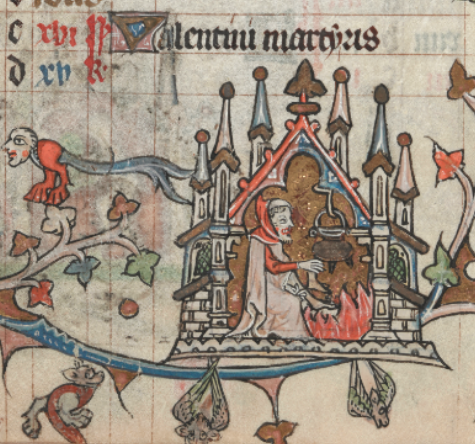 c xvi kl Valentini martyris
d xv kl